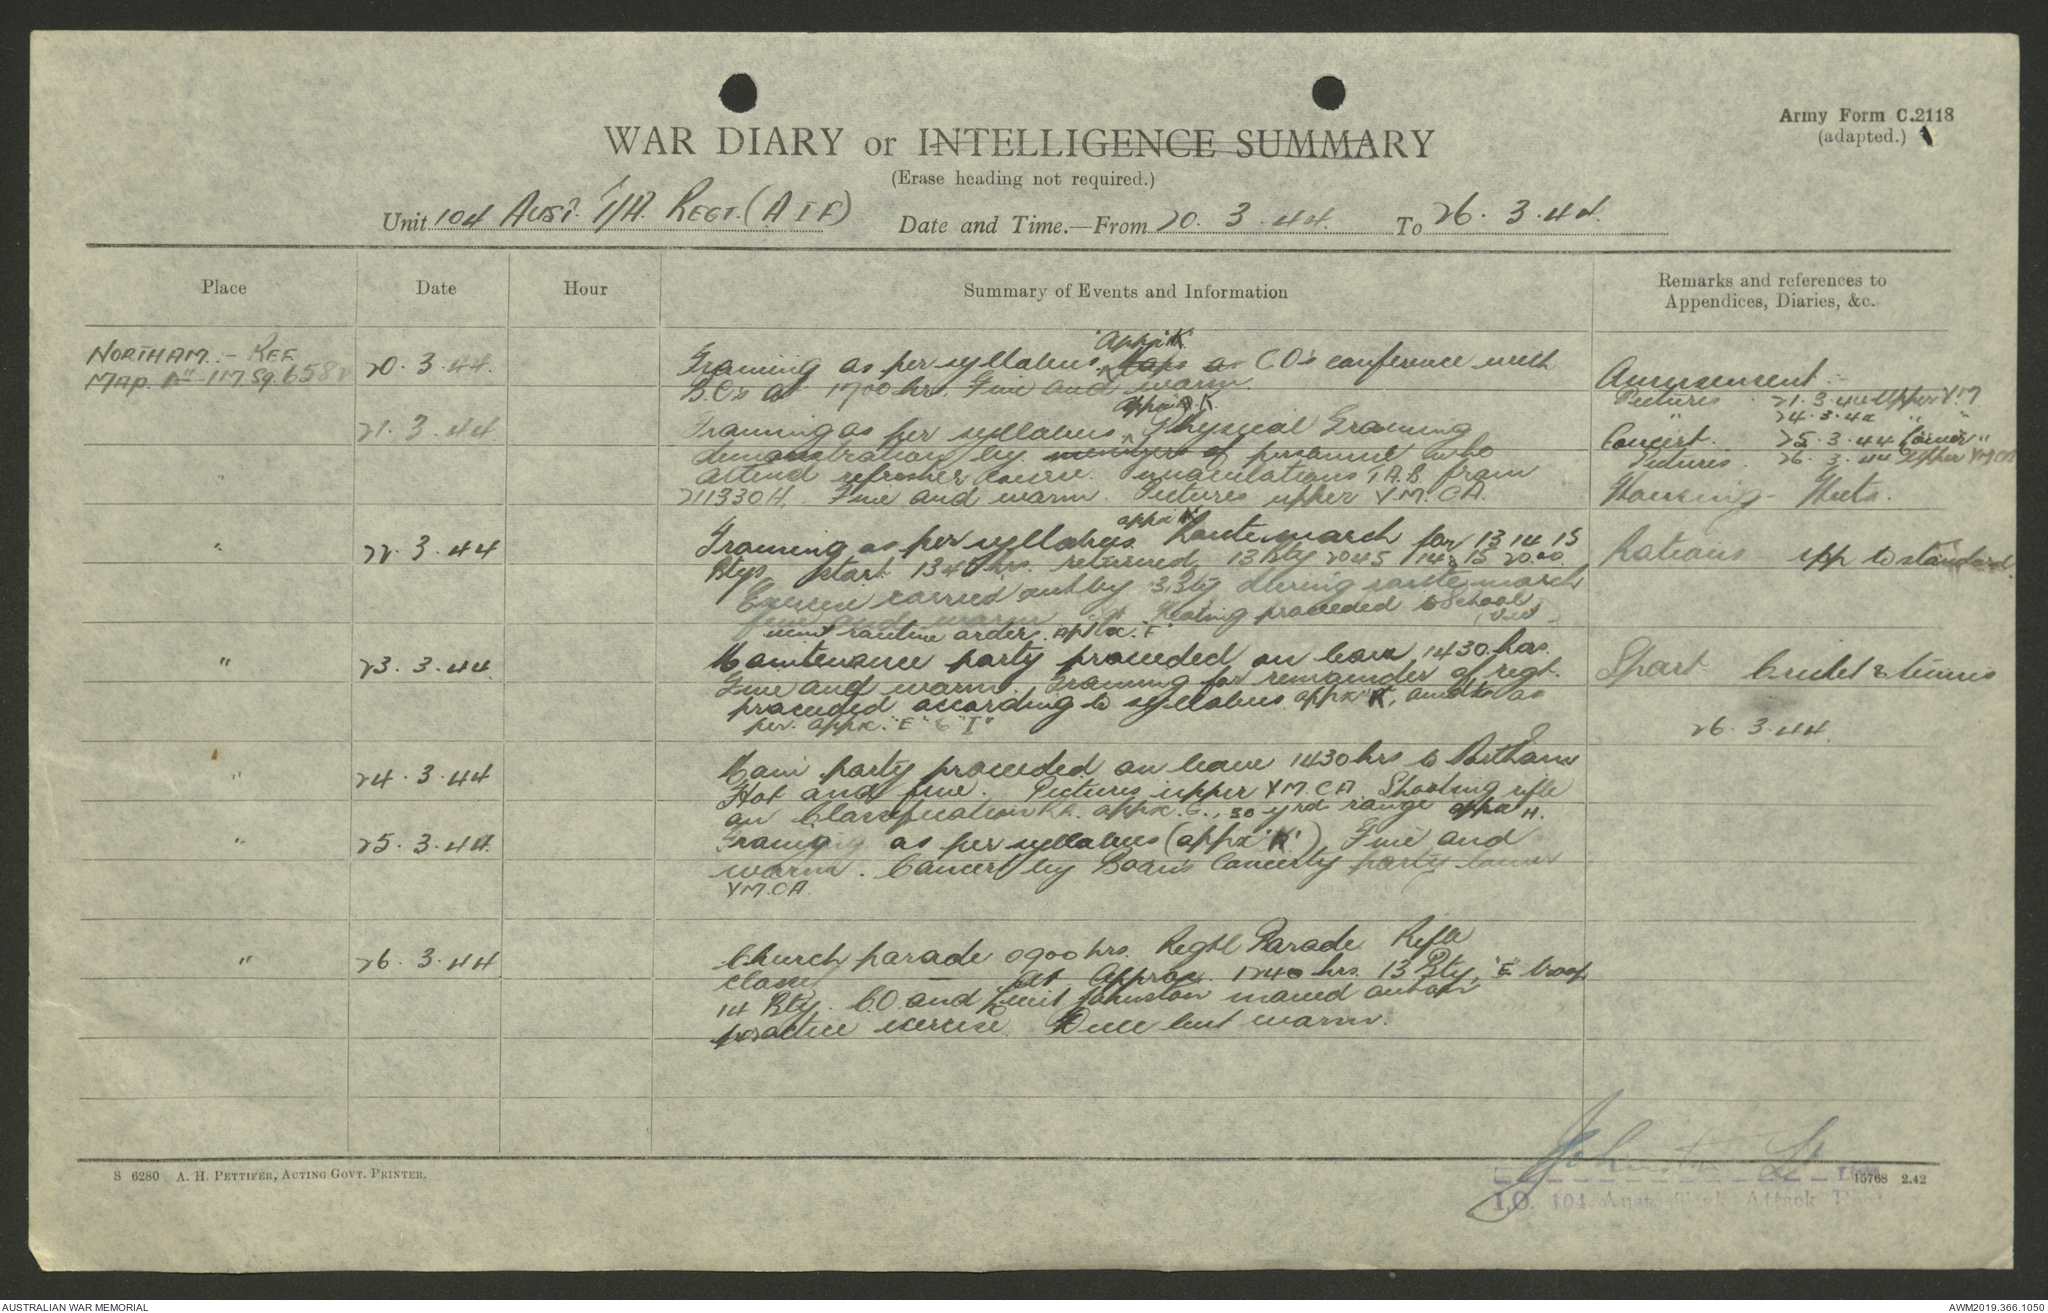 Army Form C.2118
(adapted.)
WAR DIARY or INTELLIGENCE SUMMARY
(Erase heading not required.)
Unit 104 AUST. T/A. REGT. (A I F) Date and Time.—From 20. 3. 44. To 26. 3. 44.
Place Date Hour Summary of Events and Information Remarks and references to Appendices, Diaries, &c.
NORTHAM. - REF. 20. 3. 44.
MAP. 1M. Sq. 6582
Appx "K"
Training as per syllabus. CO's conference with
B.C's at 1700 hrs. Fine and warm.
Amusement :-
21. 3. 44
appx K
Training as per syllabus. Physical Training
demonstration by members of personnel who
attend refresher course. Innoculations T.A.B. from
211330H. Fine and warm. Pictures upper Y.M.C.A.
Pictures 21. 3. 44 Upper Y.M
" 24. 3. 44 " "
Concert. 25. 3. 44 Lower "
Pictures. 26. 3. 44 Upper YMCA
Housing - Huts.
" 22. 3. 44
appx "K"
Training as per syllabus Route march for 13 14 15
Btys start 1340 hrs. returned 13 Bty 2045 14 & 15 2000
Exercise carried out by Bty during route march
fine and warm Lt Keating proceeded to School
unit routine order. Appx. "F"
Rations - up to standard.
" 23. 3. 44.
Maintenance party proceeded on leave 1430 hrs.
Fine and warm. Training for remainder of regt.
proceeded according to syllabus appx "K", as
per. appx. "E" & "I"
Sport Cricket & tennis
26. 3. 44.
" 24. 3. 44
Main party proceeded on leave 1430 hrs to Northam
Hot and fine. Pictures upper Y.M.C.A. Shooting rifle
on Classification RA. appx. G., 30 yrd range appx H.
" 25. 3. 44.
Training as per syllabus (appx "K"). Fine and
warm. Concert by Boans Concert party lower
Y.M.C.A.
" 26. 3. 44
Church parade 0900 hrs. Regtl Parade Rifle
class At Approx. 1240 hrs. 13 Bty, "E" troop
14 Bty. CO. and Lieut Johnston moved out on
practice exercise. Dull but warm.
Johnston Lt
Lieut
I.O. 104 Aust. Tank Attack Regt
S 6280 A. H. PETTIFER, ACTING GOVT. PRINTER.
15768 2.42
AUSTRALIAN WAR MEMORIAL
AWM2019.366.1050